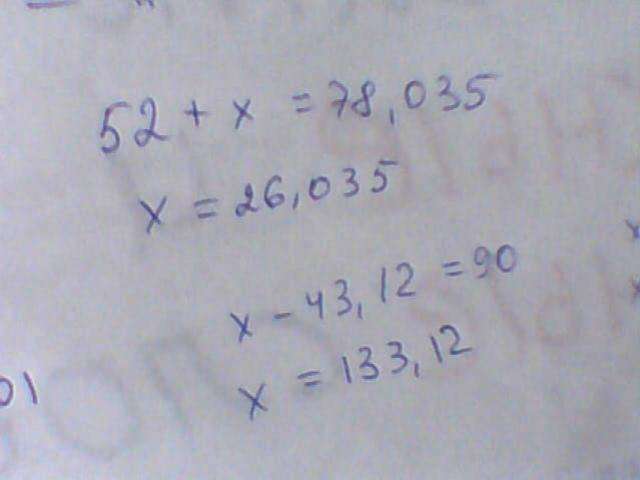 52 + x = 78,035
x = 26,035
x - 43,12 = 90
x = 133,12
01